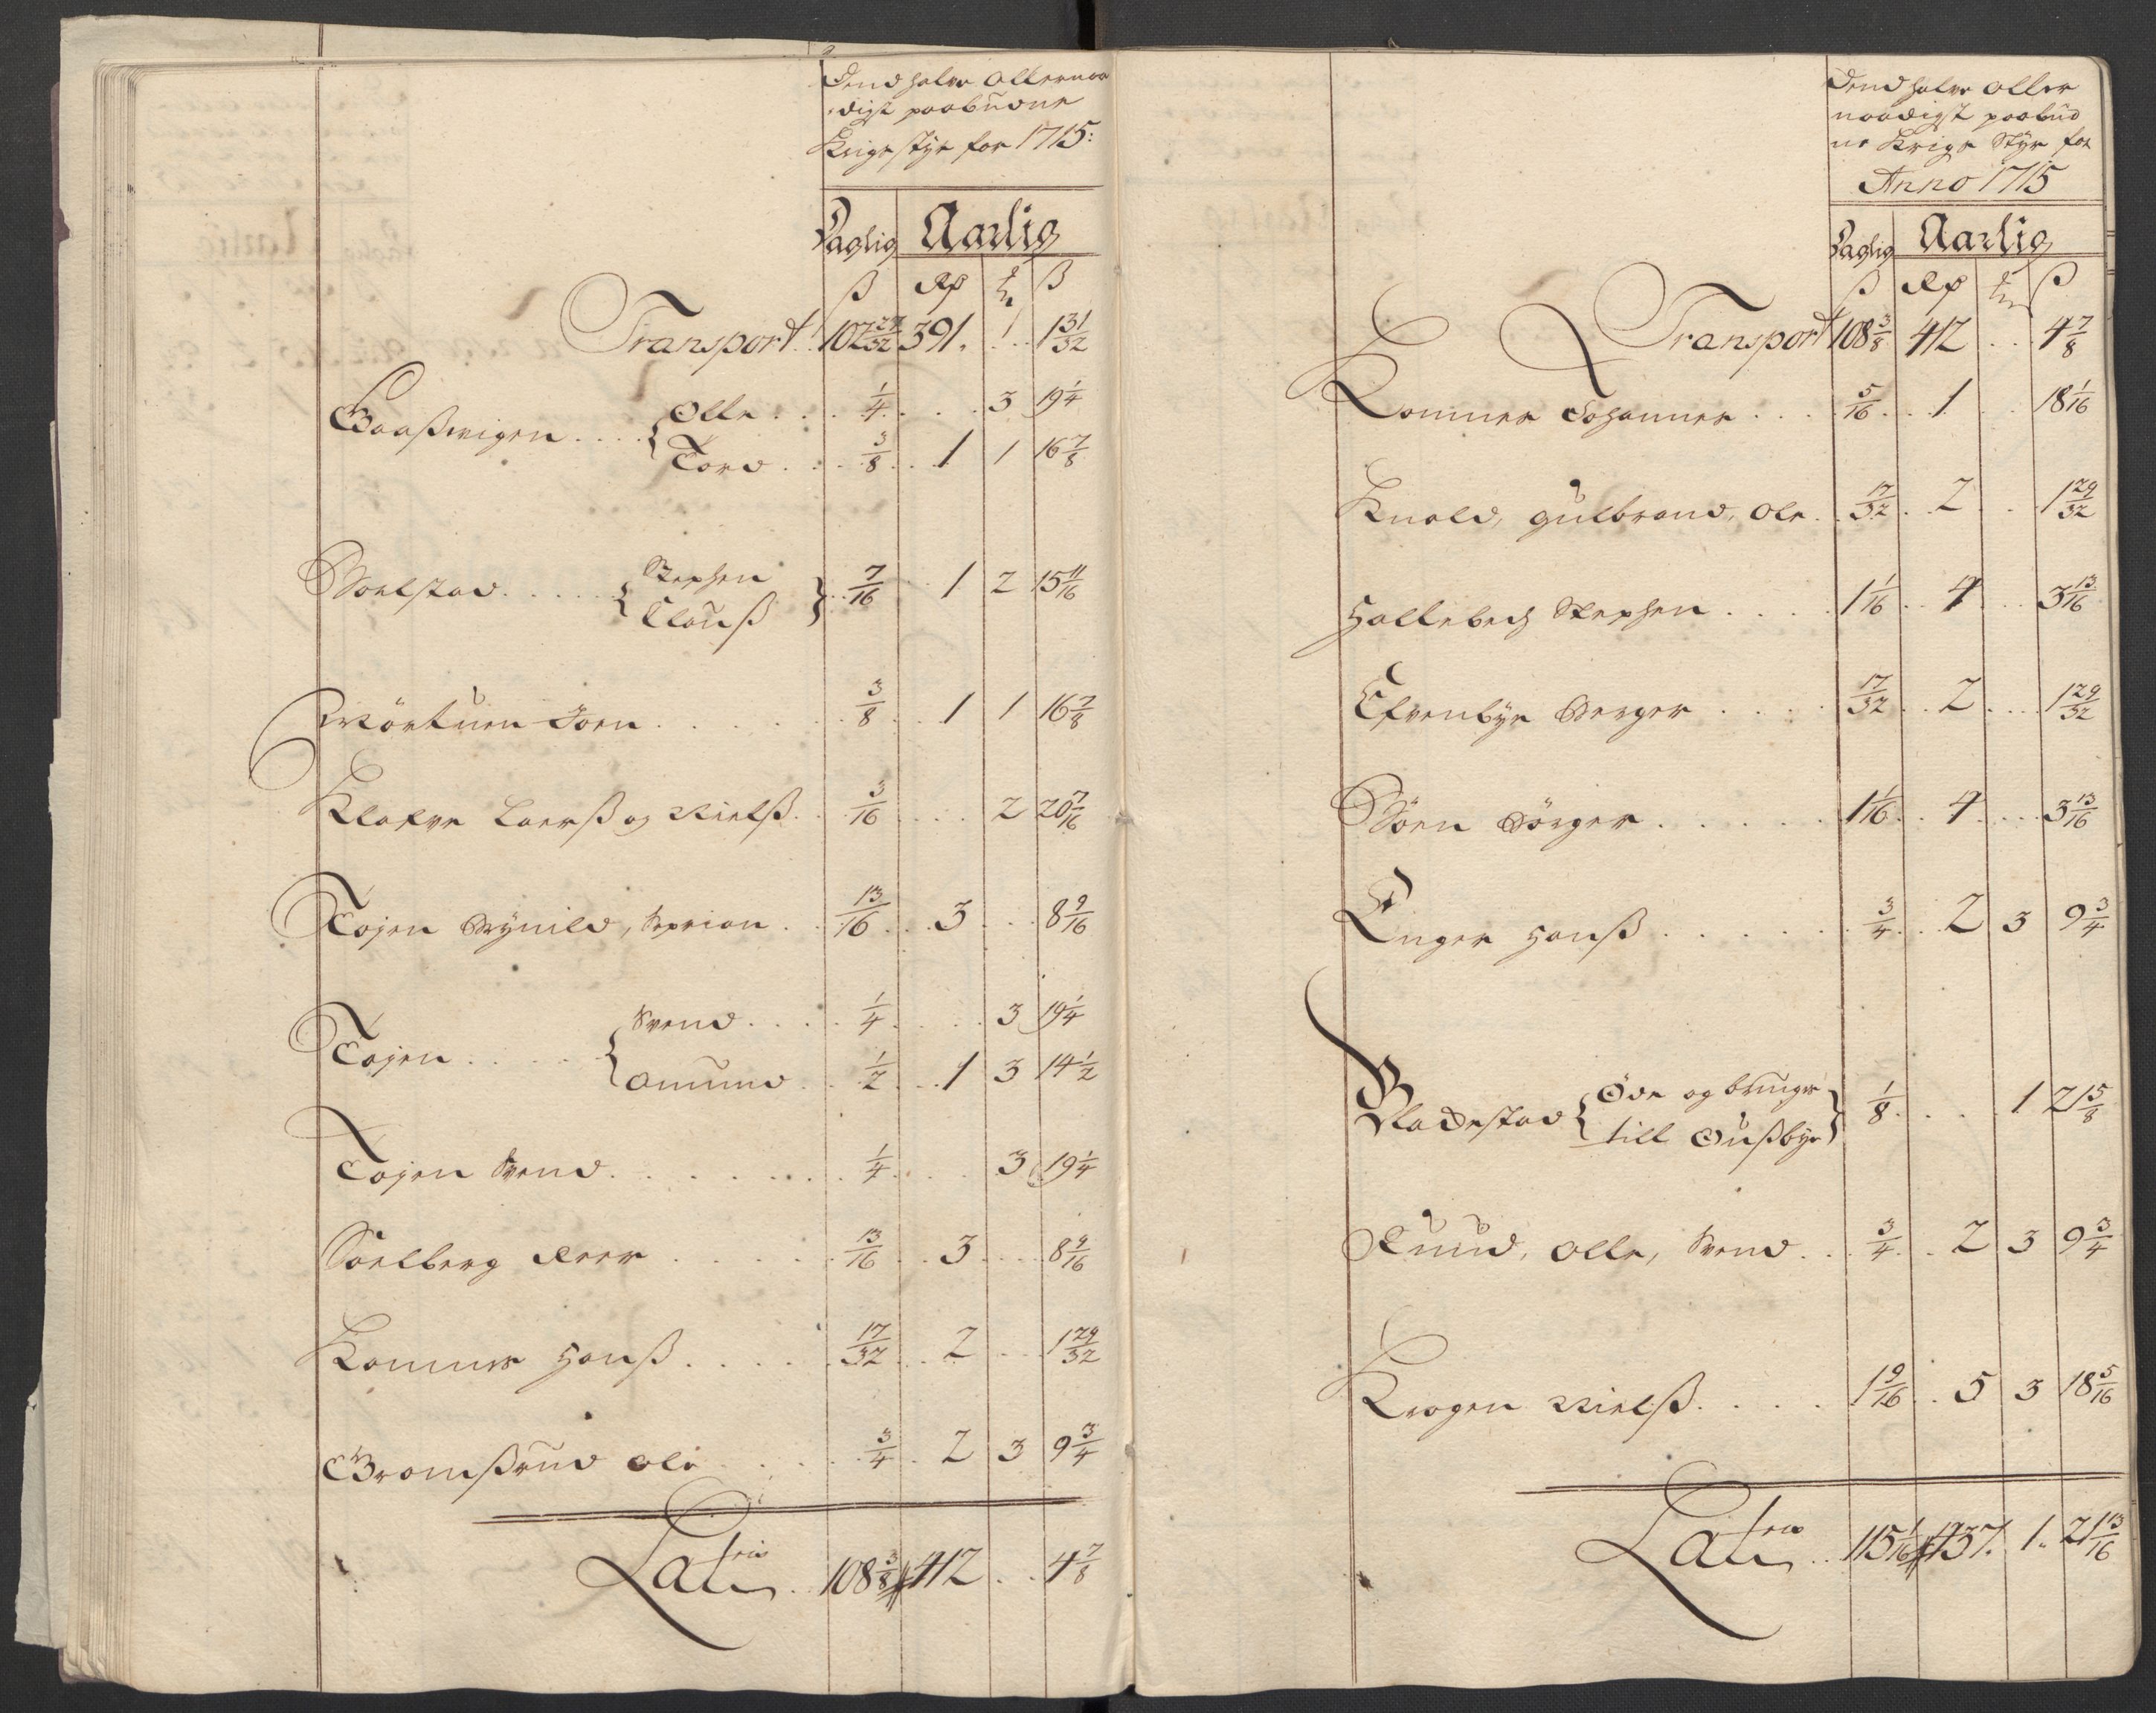 Dend halve allernaa
digst paabudne
Krigs styr for 1715:
Daglig Aarlig
ß Rdr ß
Transport 102 29/32 391 . 1 . 1 31/32
Gaaßwigen { Olle . . . 1/4 . . . 3 19 1/4
Tord . . . 3/8 . . 1 1 16 7/8
Boelstad . . . . { Stephen
Clauß } 7/16 1 2 15 11/16
Mörkuen Joen . . . 3/8 . . 1 1 16 7/8
Klafve Laerß og Nielß . . 3/16 . . . 2 20 7/16
Tojen Brÿnild, Syrian . . 13/16 . . 3 . . . 8 9/16
Tojen . . . . { Svend . . . 1/4 . . . 3 19 1/4
Amund . . 1/2 . . 1 3 14 1/2
Tojen Svend . . . . 1/4 . . . 3 19 1/4
Soelberg Peer . . . . 13/16 . . 3 . . . 8 9/16
Kommer Hanß . . . . 17/32 . . 2 . . . 1 29/32
Gramßrud Ole . . . 3/4 . 2 3 9 3/4
Lateris . . 108 3/8 412 . . 4 7/8
Dend halve aller
naadigst paabud
ne Krigs Styr for
Anno 1715
Daglig Aarlig
ß Rdr ß
Transport 108 3/8 412 . . 4 7/8
Kommer Johannes . . . 5/16 . . 1 . . 18 1/16
Knold, Gulbrand, Ole . . 17/32 . . 2 . . 1 29/32
Hallebech Stephen . . . 1 1/16 . . 4 . . . 3 13/16
Efvenbÿe Berger . . . 17/32 . . 2 . . . 1 29/32
Böen Börger . . . . 1 1/16 . . 4 . . . 3 13/16
Enger Hanß . . . . 3/4 . . 2 3 9 3/4
Bladestad { Öde og bruges
till Dußbÿe } 1/8 . . . 1 21 5/8
Ruud, Olle, Svend . . 3/4 . . 2 3 9 3/4
Krogen Nielß . . . . 1 9/16 . . 5 3 18 5/16
Lateris . . 115 1/16 437 . 1 . . 21 13/16